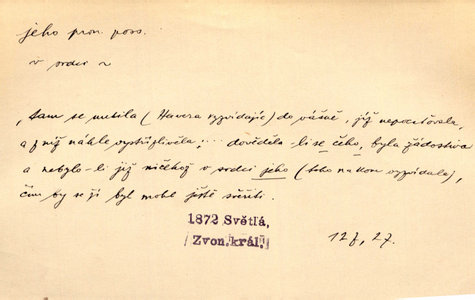 jeho pron poss.
v srdci ~
„sam se nutila (Havera vyzvídajíc) do vášně, jíž nepociťovala,
a z níž náhle vystřízlivěla; ... dověděla-li se čeho, byla žádostiva
a nebylo-li již ničehož v srdci jeho (toho na kom vyzvídala),
čím by se jí byl mohl ještě svěřiti.
1872 Světlá,
Zvon. král.
127, 27.